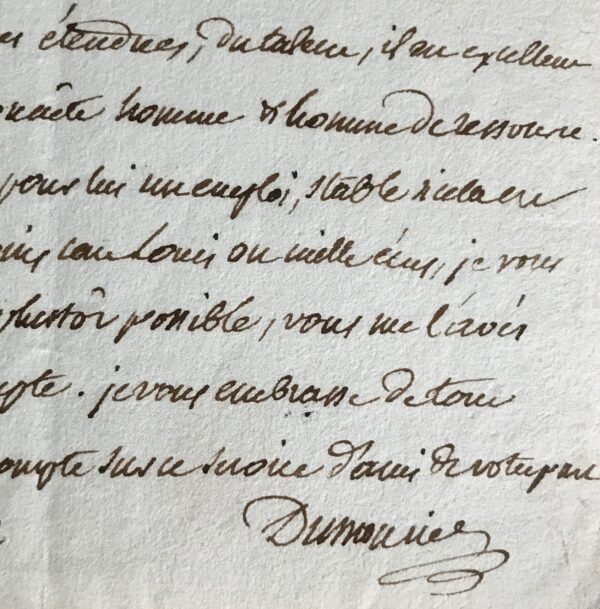 étendues, du talent, il est excellent
honnête homme & homme de ressource.
pour lui un emploi, stable
cent Louis ou mille écus, je vous
plustôt possible, vous me l'avés
je vous embrasse de tout
compte sur ce service d'ami de votre part
Dumouriez